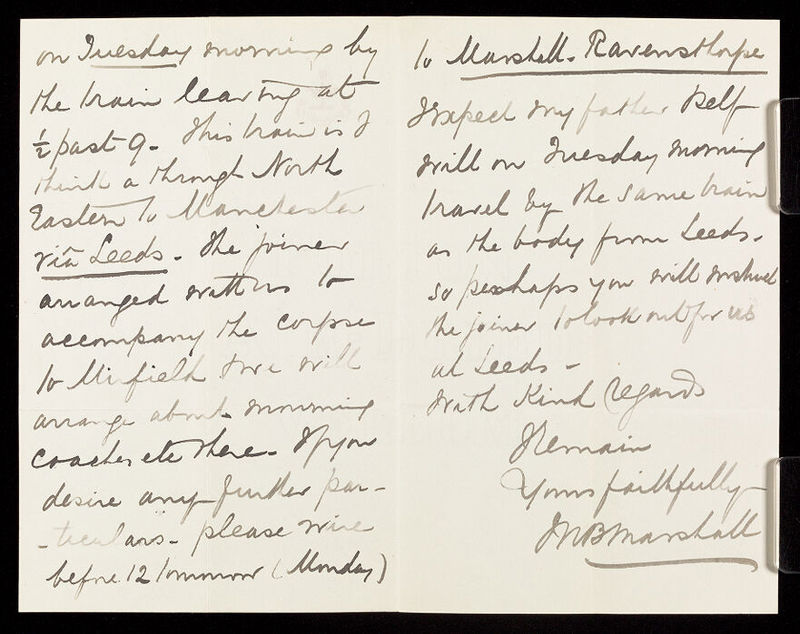 on Tuesday morning by
the train leaving at
½ past 9. This train is I
think a through North
Eastern to Manchester
via Leeds. The joiner
arranged with us to
accompany the corpse
to Mirfield & we will
arrange about mourning
coaches etc there. If you
desire any further par-
-ticulars - please wire
before 12 tomorrow (Monday)
to Marshall. Ravensthorpe
I expect my father & self
will on Tuesday morning
travel by the same train
as the body from Leeds.
so perhaps you will instruct
the joiner to look out for us
at Leeds -
With Kind regards
I remain
Yours faithfully
MB Marshall